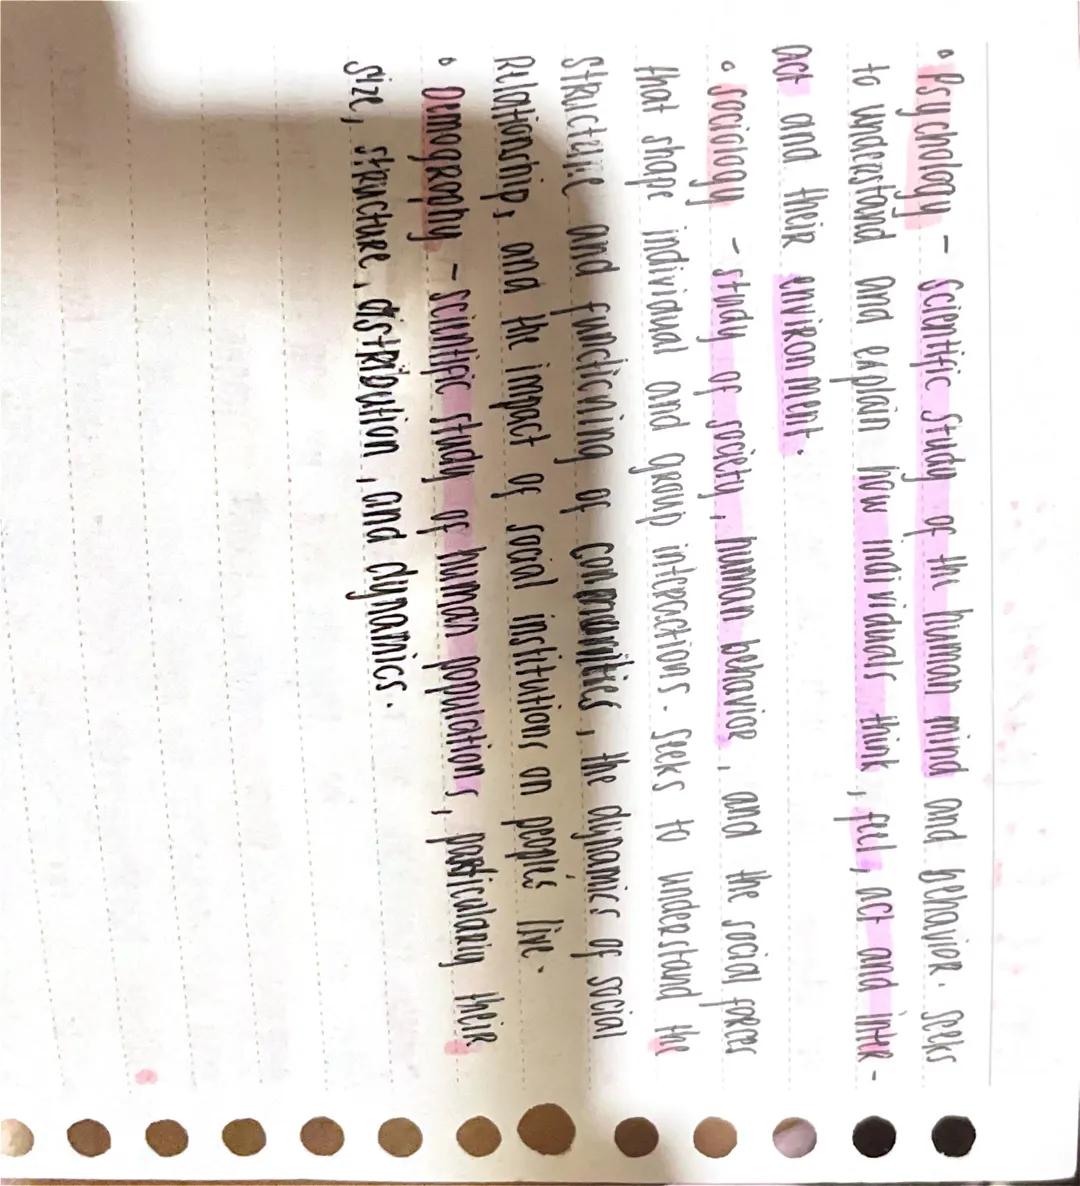 • Psychology - scientific study of the human mind and behavior. seeks
to understand and explain how individuals think, feel, act and inter-
act and their environment.
• Sociology - study of society, human behavior, and the social forces
that shape individual and group interactions. seeks to understand the
structure and functioning of communities, the dynamics of social
Relationship, and the impact of social institutions on people's live.
• Demography - scientific study of human populations, particularly their
size, structure, distribution, and dynamics.